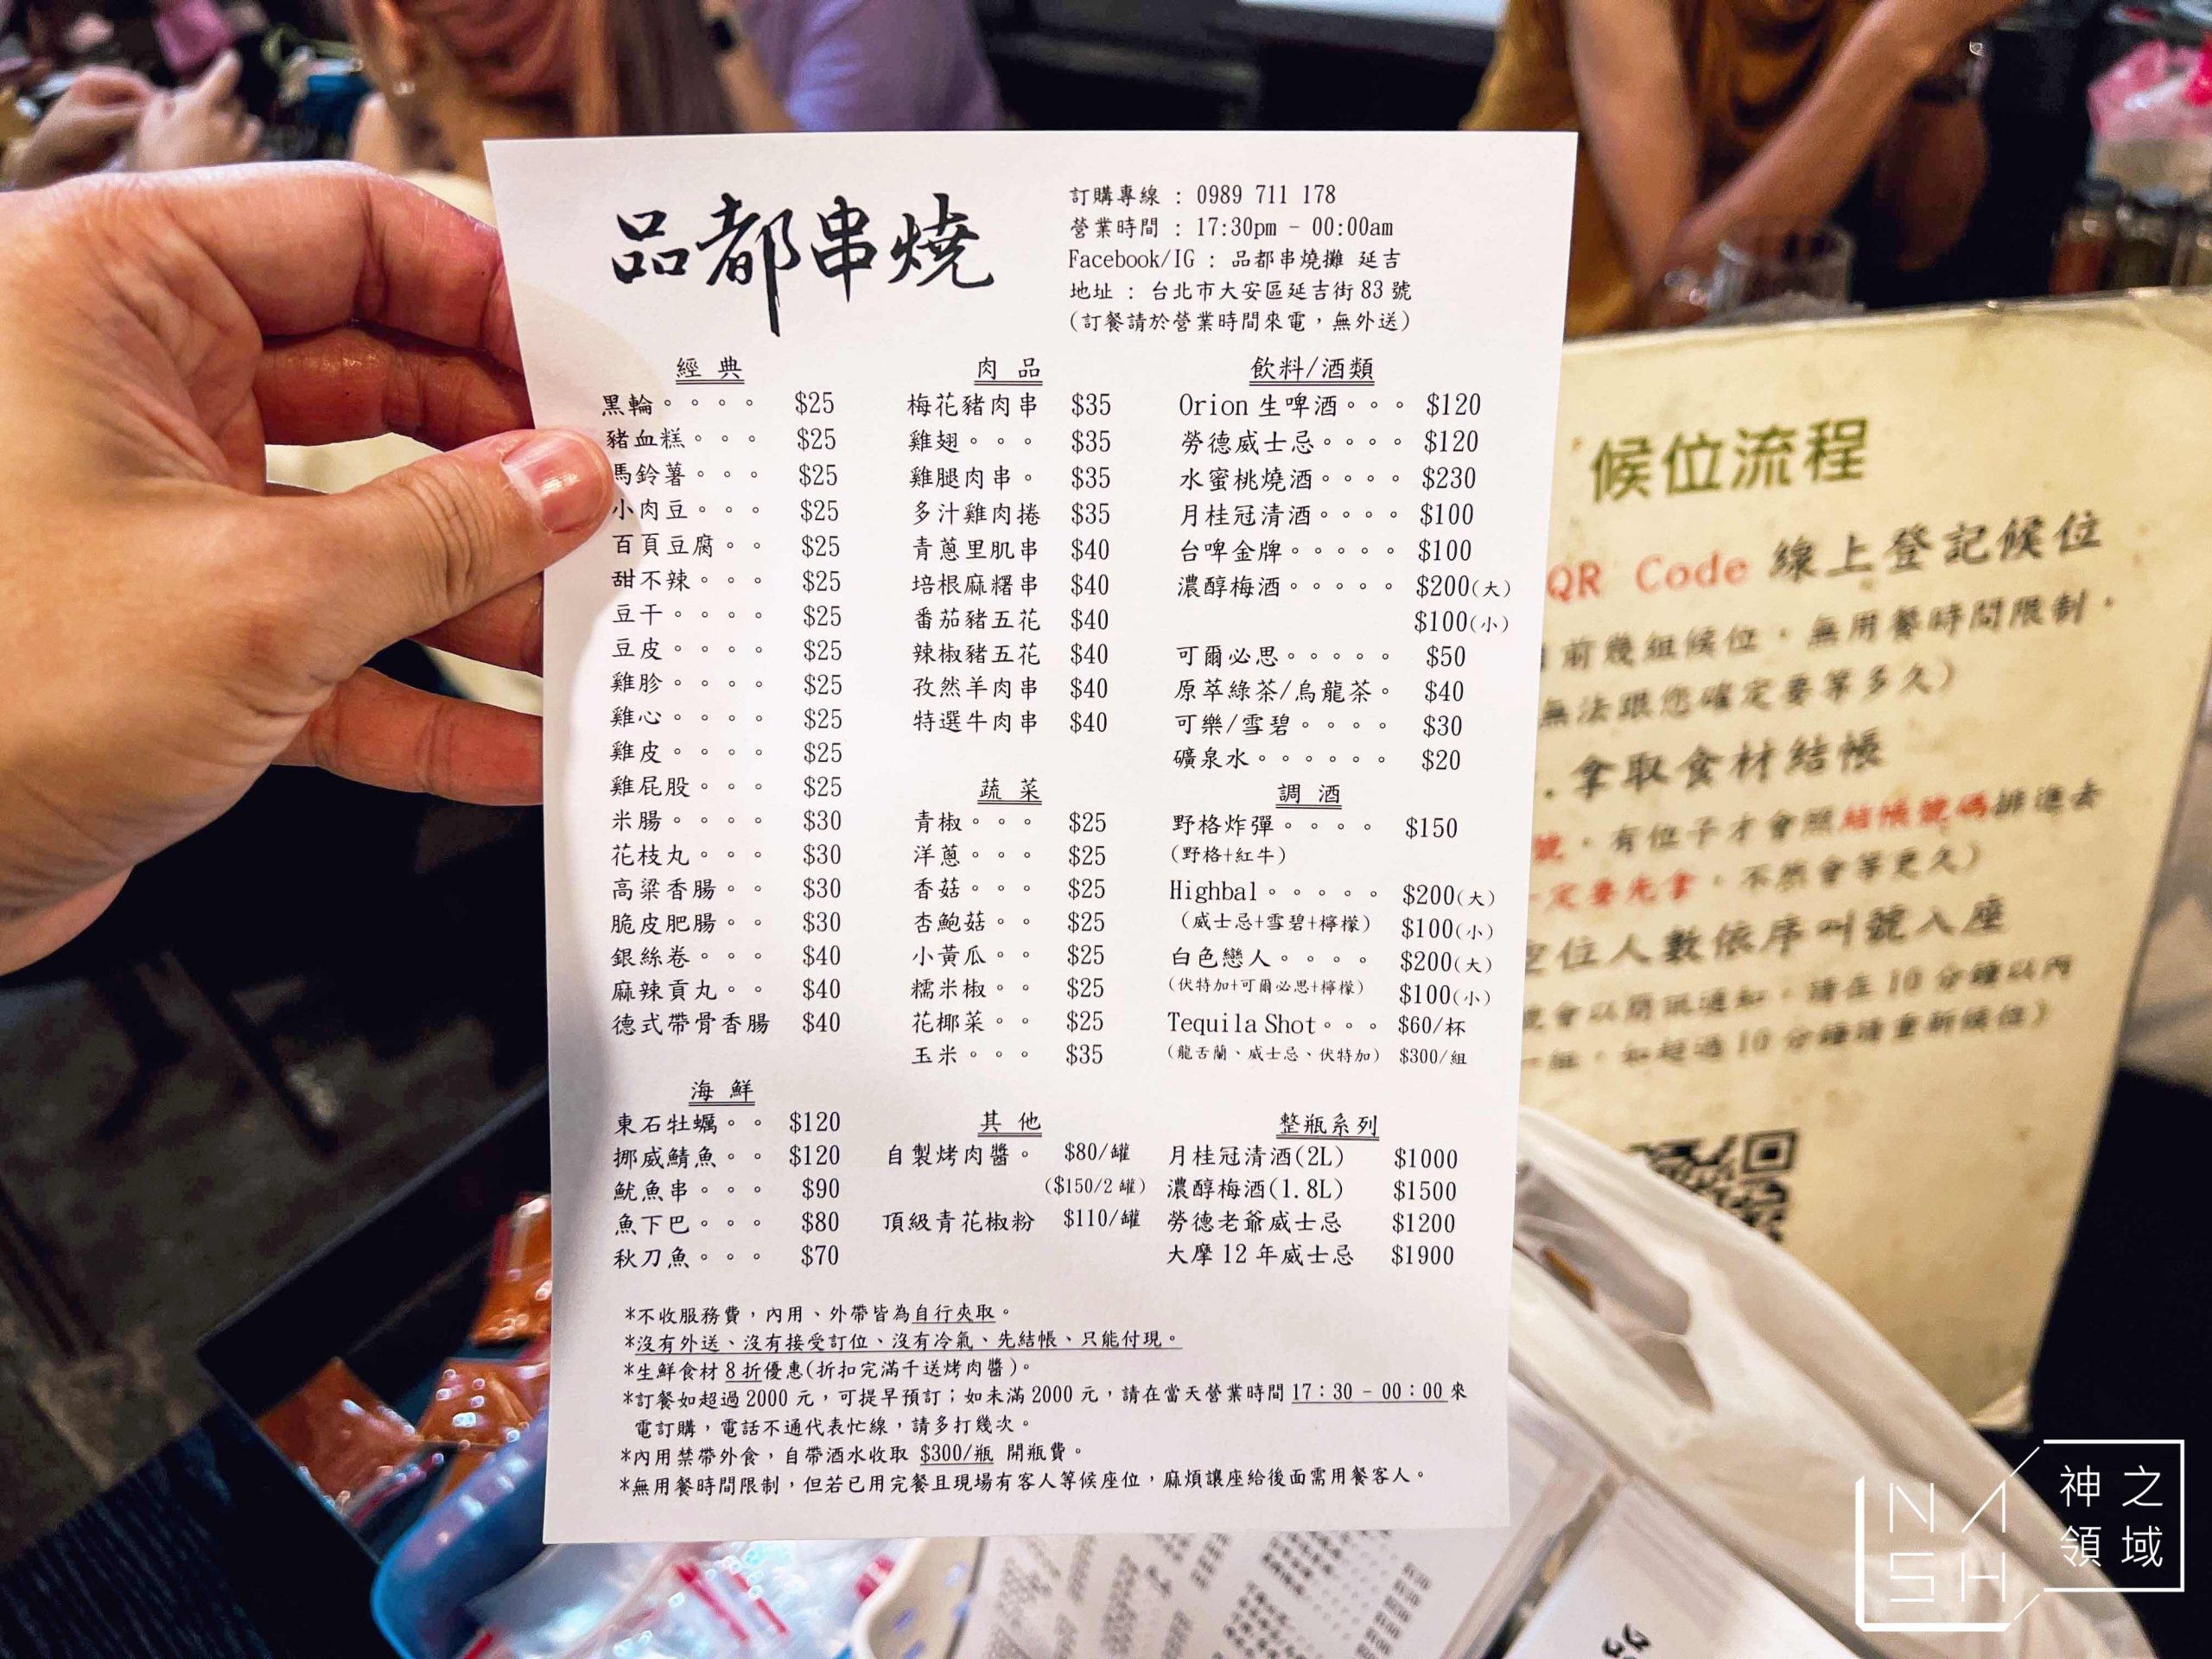 品都串燒
訂購專線 : 0989 711 178
營業時間 : 17:30pm - 00:00am
Facebook/IG : 品都串燒攤 延吉
地址 : 台北市大安區延吉街 83 號
(訂餐請於營業時間來電，無外送)
經 典
黑輪。。。。 $25
豬血糕。。。 $25
馬鈴薯。。。 $25
小肉豆。。。 $25
百頁豆腐。。 $25
甜不辣。。。 $25
豆干。。。。 $25
豆皮。。。。 $25
雞胗。。。。 $25
雞心。。。。 $25
雞皮。。。。 $25
雞屁股。。。 $25
米腸。。。。 $30
花枝丸。。。 $30
高粱香腸。。 $30
脆皮肥腸。。 $30
銀絲卷。。。 $40
麻辣貢丸。。 $40
德式帶骨香腸 $40
海 鮮
東石牡蠣。。 $120
挪威鯖魚。。 $120
魷魚串。。。 $90
魚下巴。。。 $80
秋刀魚。。。 $70
肉 品
梅花豬肉串 $35
雞翅。。。 $35
雞腿肉串。 $35
多汁雞肉捲 $35
青蔥里肌串 $40
培根麻糬串 $40
番茄豬五花 $40
辣椒豬五花 $40
孜然羊肉串 $40
特選牛肉串 $40
蔬 菜
青椒。。。 $25
洋蔥。。。 $25
香菇。。。 $25
杏鮑菇。。 $25
小黃瓜。。 $25
糯米椒。。 $25
花椰菜。。 $25
玉米。。。 $35
其 他
自製烤肉醬。 $80/罐
($150/2 罐)
頂級青花椒粉 $110/罐
飲料/酒類
Orion 生啤酒。。。 $120
勞德威士忌。。。。 $120
水蜜桃燒酒。。。。 $230
月桂冠清酒。。。。 $100
台啤金牌。。。。。 $100
濃醇梅酒。。。。。 $200(大)
$100(小)
可爾必思。。。。。 $50
原萃綠茶/烏龍茶。 $40
可樂/雪碧。。。。 $30
礦泉水。。。。。。 $20
調 酒
野格炸彈。。。。 $150
(野格+紅牛)
Highbal。。。。。 $200(大)
(威士忌+雪碧+檸檬) $100(小)
白色戀人。。。。 $200(大)
(伏特加+可爾必思+檸檬) $100(小)
Tequila Shot。。。 $60/杯
(龍舌蘭、威士忌、伏特加) $300/組
整瓶系列
月桂冠清酒(2L) $1000
濃醇梅酒(1.8L) $1500
勞德老爺威士忌 $1200
大摩 12 年威士忌 $1900
*不收服務費，內用、外帶皆為自行夾取。
*沒有外送、沒有接受訂位、沒有冷氣、先結帳、只能付現。
*生鮮食材 8 折優惠(折扣完滿千送烤肉醬)。
*訂餐如超過 2000 元，可提早預訂；如未滿 2000 元，請在當天營業時間 17：30 - 00：00 來
電訂購，電話不通代表忙線，請多打幾次。
*內用禁帶外食，自帶酒水收取 $300/瓶 開瓶費。
*無用餐時間限制，但若已用完餐且現場有客人等候座位，麻煩讓座給後面需用餐客人。
候位流程
QR Code 線上登記候位
前幾組候位，無用餐時間限制，
無法跟您確定要等多久)
.拿取食材結帳
號，有位子才會照結帳號碼排進去
一定要先拿，不然會等更久)
空位人數依序叫號入座
會以簡訊通知，請在 10 分鐘以內
一組，如超過 10 分鐘請重新候位)
NASH
神之
領域